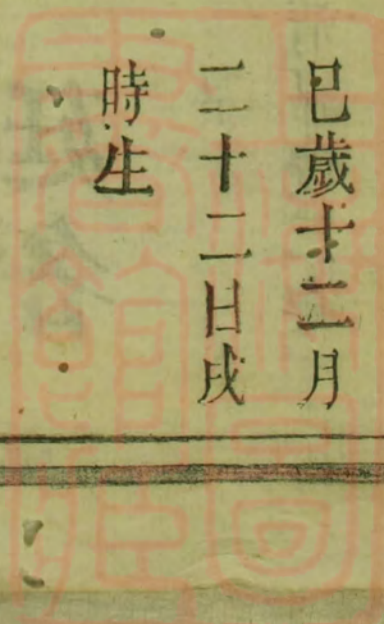 巳歲十二月
二十二日戌
時生